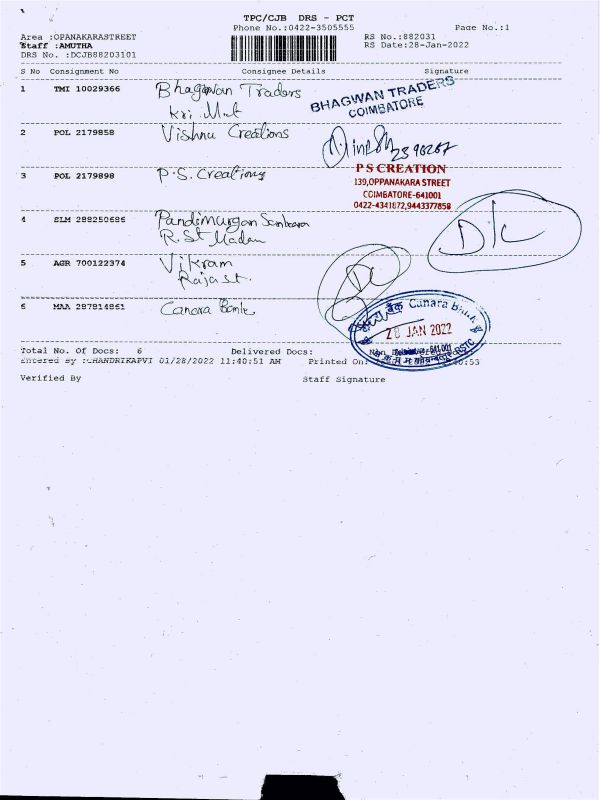 TPC/CJB DRS - PCT
Phone No.:0422-3505555
Page No.:1
Area :OPANAKARASTREET
RS No.:882031
Staff :AMUTHA
RS Date:28-Jan-2022
DRS No. :DCJB88203101
S No Consignment No Consignee Details Signature
1 TMI 10029366 Bhagwan Traders
BHAGWAN TRADERS
COIMBATORE
2 POL 2179858 Vishnu Creations
3 POL 2179898 P.S. Creations
P S CREATION
139,OPPANAKARA STREET
COIMBATORE-641001
0422-4341872,9443377858
4 SLM 288250686 Pandimurgan
R.St
D/C
5 AGR 700122374 Vikram
Raja st.
6 MAA 287814861 Canara Bank
केनरा बैंक Canara Bank
28 JAN 2022
Total No. Of Docs: 6 Delivered Docs:
Entered By :CHANDRIKAPVT 01/28/2022 11:40:51 AM Printed On:
Verified By Staff Signature